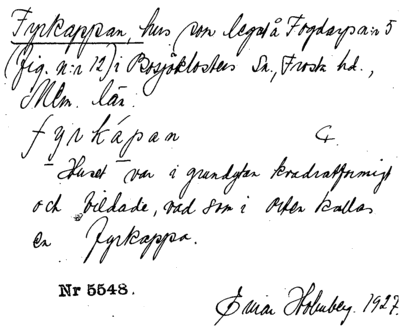 Fyrkappan, hus som legat å Fogdarp n:r 5
(fig. n:r 12) i Bosjöklosters Sn., Frosta hd.,
Mlm. län.
fyrkápan
Huset var i grundytan kvadratformigt
och bildade, vad som i orten kallas
en fyrkappa.
Nr 5548.
Einar Holmberg. 1927.